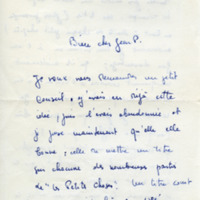 Bien cher Jean P.
Je veux vous demander un petit
conseil, j'avais eu déjà cette
idée, puis l'avais abandonnée, et
je pose maintenant qu'elle
bonne, celle de mettre un titre
sur chacune des nombreuses parties
de "Les Petites Choses". Un titre court